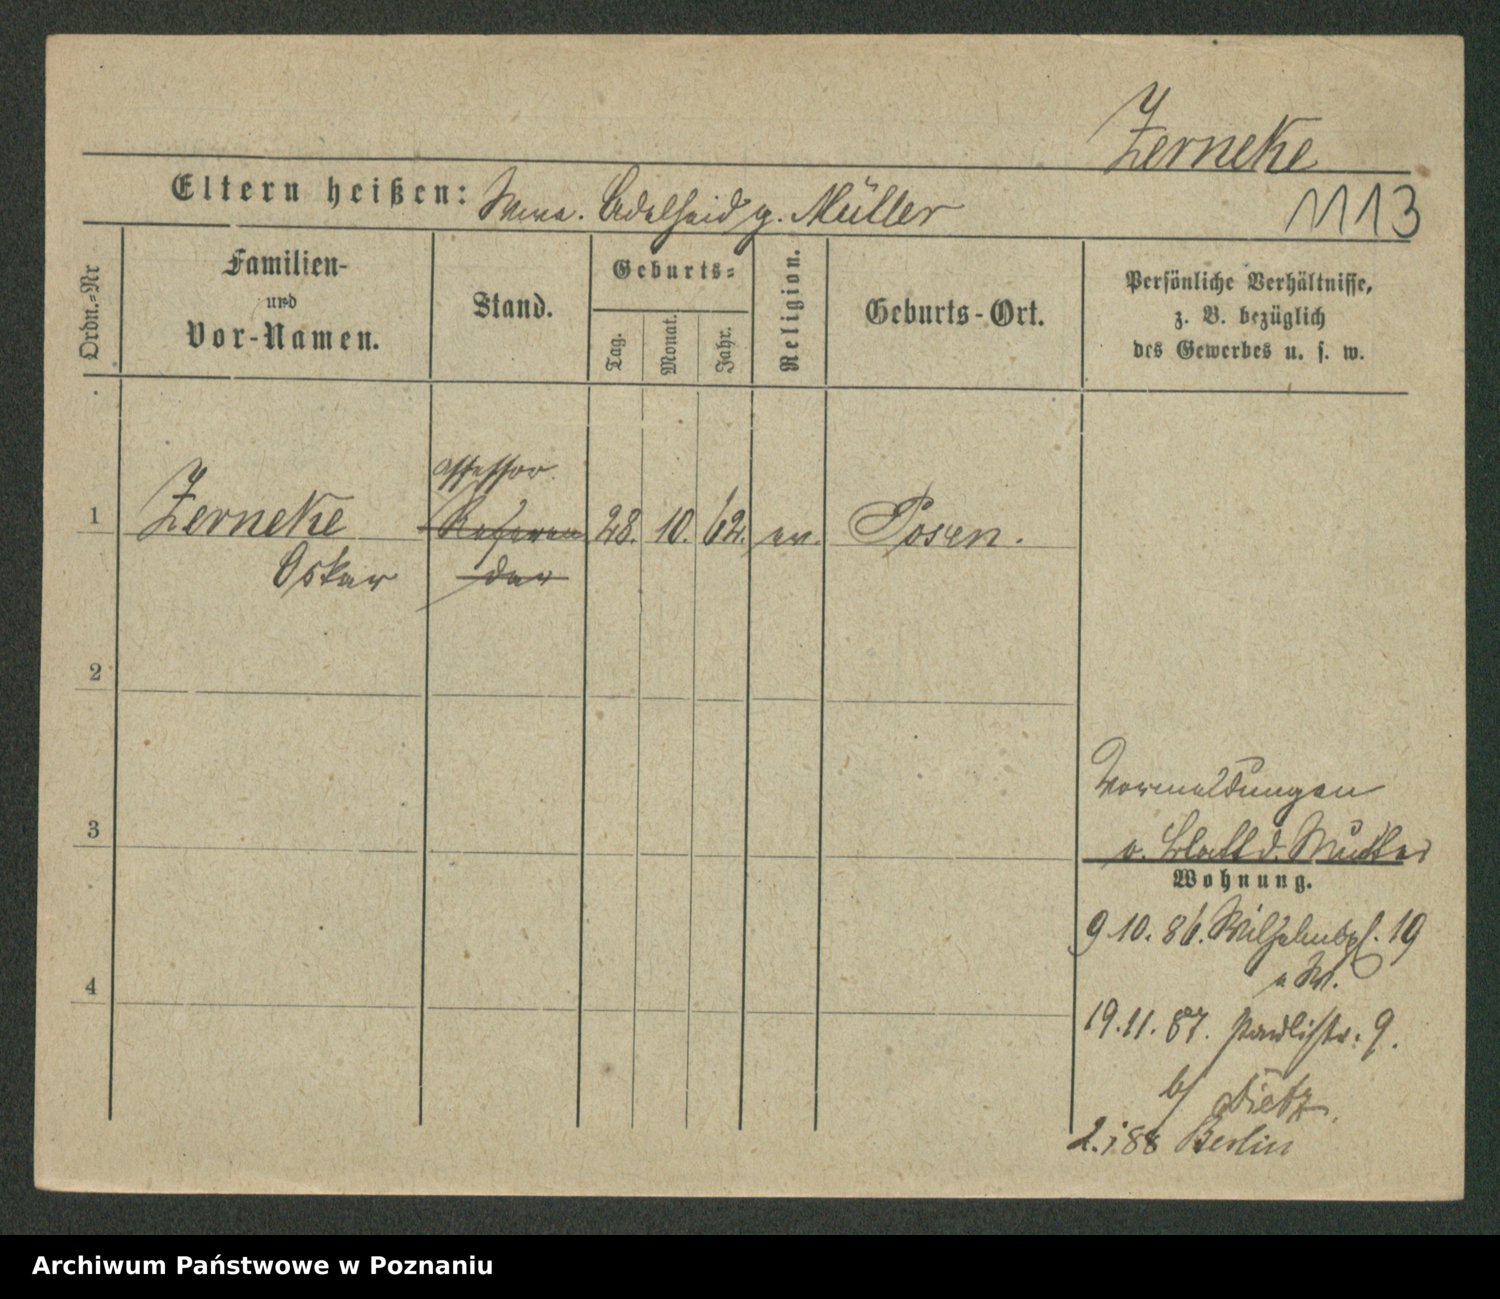 Zerneke
Eltern heißen: Wwe. Adelheid g. Müller
1113
Ordn.-Nr
Familien-
und
Vor-Namen.
Stand.
Geburts-
Tag.
Monat.
Jahr.
Religion.
Geburts-Ort.
Persönliche Verhältnisse,
z. B. bezüglich
des Gewerbes u. s. w.
Assessor
1 Zerneke Referen 28. 10. 62. ev. Posen.
Oskar dar
2
3
4
Vormeldungen
v. Blatt d. Mutter
Wohnung.
9.10.86. Wilhelmspl. 19
19.11.87. Paulistr. 9.
b/ Dietz.
2.1.88 Berlin
Archiwum Państwowe w Poznaniu